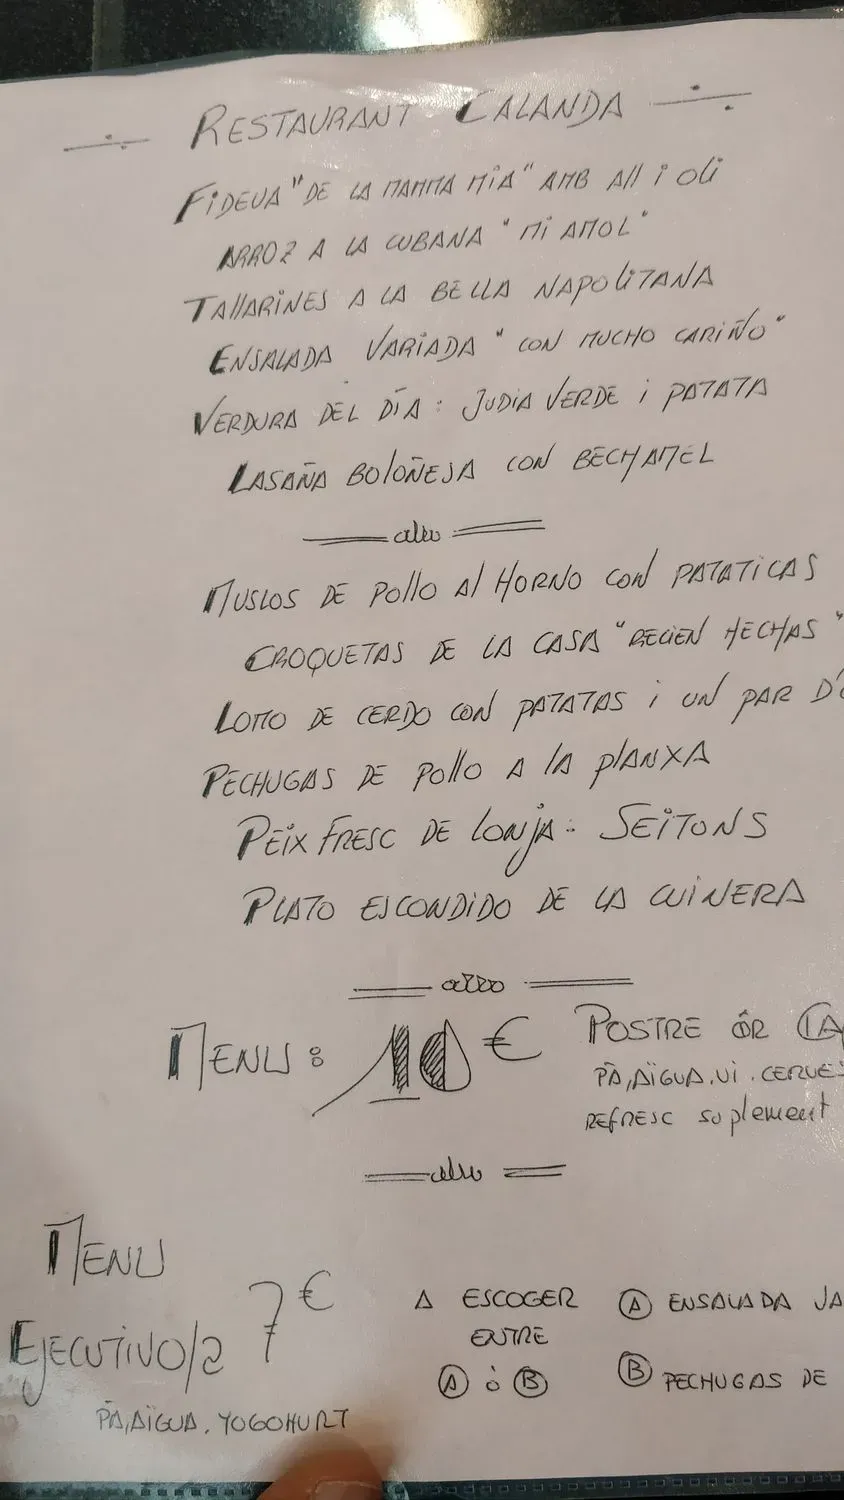 RESTAURANT CALANDA
FIDEUA "DE LA MAMMA MIA" AMB All i Oli
ARROZ A LA CUBANA "MI AMOL"
TAllARINES A LA BELLA NAPOLITANA
ENSALADA VARIADA "CON MUCHO CARIÑO"
VERDURA DEL DÍA: JUDIA VERDE i PATATA
LASAÑA BOLOÑESA CON BECHAMEL
MUSLOS DE POLLO Al HORNO CON PATATICAS
CROQUETAS DE LA CASA "RECIEN HECHAS"
LOMO DE CERDO CON PATATAS i UN PAR D'
PECHUGAS DE POLLO A LA PLANXA
PEIX FRESC DE LONJA: SEITONS
PLATO ESCONDIDO DE LA CUINERA
MENU: 10 € POSTRE
PA, AIGUA, VI. CERVES
REFRESC SUPLEMENT
MENU 7 €
EJECUTIVO/A
PA, AIGUA. YOGOHURT
A ESCOGER ENTRE
A ó B
A ENSALADA
B PECHUGAS DE